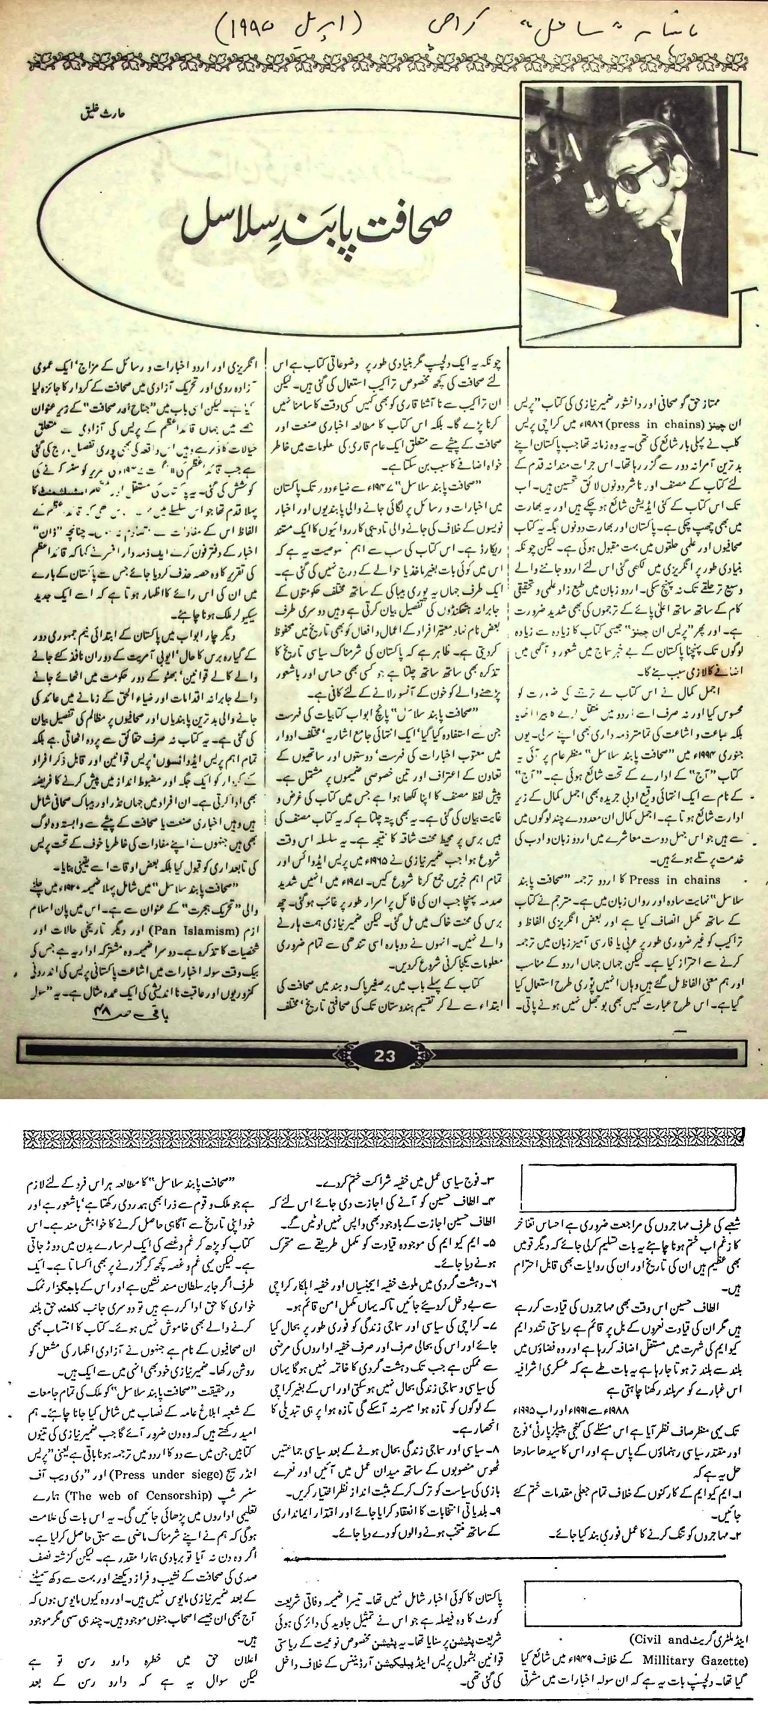 ماہنامہ "ساحل" کراچی (اپریل ۱۹۹۵)
حارث خلیق
صحافت پابَندِ سلاسل
ممتاز حق گو صحافی اور دانشور ضمیر نیازی کی کتاب "پریس
ان چینز (press in chains) ۱۹۸۶ء میں کراچی پریس
کلب نے پہلی بار شائع کی تھی۔ یہ وہ زمانہ تھا جب پاکستان اپنے
بد ترین آمرانہ دور سے گزر رہا تھا۔ اس جرات مندانہ قدم کے
لئے کتاب کے مصنف اور ناشر دونوں لائق تحسین ہیں۔ اب
تک اس کتاب کے کئی ایڈیشن شائع ہو چکے ہیں اور یہ بھارت
میں بھی چھپ چکی ہے۔ پاکستان اور بھارت دونوں جگہ یہ کتاب
صحافیوں اور علمی حلقوں میں بہت مقبول ہوئی ہے۔ لیکن چونکہ
بنیادی طور پر انگریزی میں لکھی گئی اس لئے اردو جاننے والے
وسیع تر حلقے تک نہ پہنچ سکی۔ اردو زبان میں طبع زاد علمی و تحقیقی
کام کے ساتھ ساتھ اعلیٰ پائے کے ترجموں کی بھی شدید ضرورت
ہے۔ اور پھر "پریس ان چینز" جیسی کتاب کا زیادہ سے زیادہ
لوگوں تک پہنچنا پاکستان کے بے خبر سماج میں شعور و آگہی میں
اضافے کا لازمی سبب بنے گا۔
اجمل کمال نے اس کتاب کے ترجمے کی ضرورت کو
محسوس کیا اور نہ صرف اسے اردو میں منتقل کرنے کا بیڑا اٹھایا
بلکہ طباعت و اشاعت کی تمامتر ذمہ داری بھی اپنے سر لی۔ یوں
جنوری ۱۹۹۴ء میں "صحافت پابند سلاسل" منظر عام پر آئی یہ
کتاب "آج" کے ادارے کے تحت شائع ہوئی ہے۔ "آج"
کے نام سے ایک انتہائی وقیع ادبی جریدہ بھی اجمل کمال کے زیر
ادارت شائع ہوتا ہے۔ اجمل کمال ان معدودے چند لوگوں میں
سے ہیں جو اس جہل دوست معاشرے میں اردو زبان و ادب کی
خدمت پر تلے ہوئے ہیں۔
Press in chains کا اردو ترجمہ "صحافت پابند
سلاسل" نہایت سادہ اور رواں زبان میں ہے۔ مترجم نے کتاب
کے ساتھ مکمل انصاف کیا ہے اور بعض انگریزی الفاظ و
تراکیب کو غیر ضروری طور پر عربی یا فارسی آمیز زبان میں ترجمہ
کرنے سے احتراز کیا ہے۔ لیکن جہاں جہاں اردو کے مناسب
اور ہم معنی الفاظ مل گئے ہیں وہاں انہیں پوری طرح استعمال کیا
گیا ہے۔ اس طرح عبارت کہیں بھی بوجھل نہیں ہونے پاتی۔
چونکہ یہ ایک دلچسپ مگر بنیادی طور پر وضوعاتی کتاب ہے اس
لئے صحافت کی کچھ مخصوص تراکیب استعمال کی گئی ہیں۔ لیکن
ان تراکیب سے نا آشنا قاری کو بھی کہیں کسی دقت کا سامنا نہیں
کرنا پڑے گا۔ بلکہ اس کتاب کا مطالعہ اخباری صنعت اور
صحافت کے پیشے سے متعلق ایک عام قاری کی معلومات میں خاطر
خواہ اضافے کا سبب بن سکتا ہے۔
"صحافت پابند سلاسل" ۱۹۴۷ء سے ضیاء دور تک پاکستان
میں اخبارات و رسائل پر لگائی جانے والی پابندیوں اور اخبار
نویسوں کے خلاف کی جانے والی تادیبی کارروائیوں کا ایک مستند
ریکارڈ ہے۔ اس کتاب کی سب سے اہم خصوصیت یہ ہے کہ
اس میں کوئی بات بغیر ماخذ یا حوالے کے درج نہیں کی گئی ہے۔
ایک طرف جہاں یہ پوری بیباکی کے ساتھ مختلف حکومتوں کے
جابرانہ ہتھکنڈوں کی تفصیل بیان کرتی ہے وہیں دوسری طرف
بعض نام نہاد معتبر افراد کے اعمال و افعال کو بھی تاریخ میں محفوظ
کر دیتی ہے۔ ظاہر ہے کہ پاکستان کی شرمناک سیاسی تاریخ کا
تذکرہ بھی ساتھ ساتھ چلتا ہے جو کسی بھی حساس اور باشعور
پڑھنے والے کو خون کے آنسو رلانے کے لئے کافی ہے۔
"صحافت پابند سلاسل" پانچ ابواب کتابیات کی فہرست
جن سے استفادہ کیا گیا' ایک انتہائی جامع اشاریہ' مختلف ادوار
میں معتوب اخبارات کی فہرست' دوستوں اور ساتھیوں کے
تعاون کے اعتراف اور تین خصوصی ضمیموں پر مشتمل ہے۔
پیش لفظ مصنف کا اپنا لکھا ہوا ہے جس میں کتاب کی غرض و
غایت بیان کی گئی ہے۔ یہ بھی پتہ چلتا ہے کہ یہ کتاب مصنف کی
بیس برس پر محیط محنت شاقہ کا نتیجہ ہے۔ یہ سلسلہ اس وقت
شروع ہوا جب ضمیر نیازی نے ۱۹۶۵ء میں پریس ایڈوائس اور
تمام اہم خبریں جمع کرنا شروع کیں۔ ۱۹۷۱ء میں انہیں شدید
صدمہ پہنچا جب ان کی فائل پراسرار طور پر غائب ہو گئی۔ چھ
برس کی محنت خاک میں مل گئی۔ لیکن ضمیر نیازی ہمت ہارنے
والے نہیں۔ انہوں نے دوبارہ اسی تندھی سے تمام ضروری
معلومات یکجا کرنی شروع کر دیں۔
کتاب کے پہلے باب میں برصغیر پاک و ہند میں صحافت کی
ابتداء سے لے کر تقسیم ہندوستان تک کی صحافتی تاریخ' مختلف
انگریزی اور اردو اخبارات و رسائل کے مزاج' ایک عمومی
آزادہ روی اور تحریک آزادی میں صحافت کے کردار کا جائزہ لیا
گیا ہے۔ لیکن اسی باب میں "جناح اور صحافت" کے زیر عنوان
حصے میں جہاں قائد اعظم کے پریس کی آزادی سے متعلق
خیالات کا ذکر ہے وہیں اس واقعہ کی بھی پوری تفصیل درج کی گئی
ہے جب قائد اعظم کی
کوشش کی گئی۔
پہلا قدم تھا جو اس سلسلے میں
الفاظ اس کے مفادات سے متصادم نہ ہوں۔ چنانچہ "ڈان"
اخبار کے دفتر فون کر کے ایک ذمہ دار افسر نے کہا کہ قائد اعظم
کی تقریر کا وہ حصہ حذف کر دیا جائے جس سے پاکستان کے بارے
میں ان کی اس رائے کا اظہار ہوتا ہے کہ اسے ایک جدید
سیکولر ملک ہونا چاہئے۔
دیگر چار ابواب میں پاکستان کے ابتدائی نیم جمہوری دور
کے گیارہ برس کا حال' ایوبی آمریت کے دوران نافذ کئے جانے
والے کالے قوانین' بھٹو کے دور حکومت میں اٹھائے جانے
والے جابرانہ اقدامات اور ضیاء الحق کے زمانے میں عائد کی
جانے والی بد ترین پابندیاں اور صحافیوں پر مظالم کی تفصیل بیان
کی گئی ہے۔ یہ کتاب نہ صرف حقائق سے پردہ اٹھاتی ہے بلکہ
تمام اہم پریس ایڈوائسوں' پریس قوانین اور قابل ذکر افراد
کے کردار کو ایک جگہ اور مضبوط انداز میں پیش کرنے کا فریضہ
بھی ادا کرتی ہے۔ ان افراد میں جہاں نڈر اور بیباک صحافی شامل
ہیں وہیں اخباری صنعت یا صحافت کے پیشے سے وابستہ وہ لوگ
بھی ہیں جنہوں نے اپنے مفادات کی خاطر یا خوف کے تحت پریس
کی تابعداری کو قبول کیا بلکہ بعض اوقات اسے یقینی بنایا۔
"صحافت پابند سلاسل" میں شامل پہلا ضمیمہ ۱۹۲۰ء میں چلنے
والی "تحریک ہجرت" کے عنوان سے ہے۔ اس میں پان اسلام
ازم (Pan Islamism) اور دیگر تاریخی حالات اور
شخصیات کا تذکرہ ہے۔ دوسرا ضمیمہ وہ مشترکہ اداریہ ہے جس کی
بیک وقت سولہ اخبارات میں اشاعت پاکستانی پریس کی اندرونی
کمزوریوں اور عاقبت نا اندیشی کی ایک عمدہ مثال ہے۔ یہ "سولہ
باقی صہ ۴۸
23
شعبے کی طرف مہاجروں کی مراجعت ضروری ہے احساس تفاخر
کا زعم اب ختم ہونا چاہئے یہ بات تسلیم کرلی جائے کہ دیگر قومیں
بھی عظیم ہیں ان کی تاریخ اور ان کی روایات بھی قابل احترام
ہیں۔
الطاف حسین اس وقت بھی مہاجروں کی قیادت کر رہے
ہیں مگر ان کی قیادت نعروں کے بل پر قائم ہے ریاستی تشدد ایم
کیو ایم کی شہرت میں مستقل اضافہ کر رہا ہے اور وہ فضاؤں میں
بلند سے بلند تر ہوتا جا رہا ہے یہ بات طے ہے کہ عسکری اشرافیہ
اس غبارے کو سربلند رکھنا چاہتی ہے
۱۹۸۸ء سے ۱۹۹۱ء اور اب ۱۹۹۵ء
تک یہی منظر صاف نظر آیا ہے اس مسئلے کی کنجی پیپلز پارٹی' فوج
اور مقتدر سیاسی رہنماؤں کے پاس ہے اور اس کا سیدھا سادھا
حل یہ ہے کہ
۱۔ ایم کیو ایم کے کارکنوں کے خلاف تمام جعلی مقدمات ختم کئے
جائیں۔
۲۔ مہاجروں کو تنگ کرنے کا عمل فوری بند کیا جائے۔
۳۔ فوج سیاسی عمل میں خفیہ شراکت ختم کر دے۔
۴۔ الطاف حسین کو آنے کی اجازت دی جائے اس لئے کہ
الطاف حسین اجازت کے باوجود بھی واپس نہیں لوٹیں گے۔
۵۔ ایم کیو ایم کی موجودہ قیادت کو مکمل طریقے سے متحرک
ہونے دیا جائے۔
۶۔ دہشت گردی میں ملوث خفیہ ایجنسیاں اور خفیہ اہلکار کراچی
سے بے دخل کر دیئے جائیں تاکہ یہاں مکمل امن قائم ہو۔
۷۔ کراچی کی سیاسی اور سماجی زندگی کو فوری طور پر بحال کیا
جائے اور اس کی بحالی صرف اور صرف خفیہ اداروں کی مرضی
سے ممکن ہے جب تک دہشت گردی کا خاتمہ نہیں ہو گا یہاں
کی سیاسی و سماجی زندگی بحال نہیں ہو سکتی اور اس کے بغیر کراچی
کے لوگوں کو تازہ ہوا میسر نہ آسکے گی تازہ ہوا پر ہی تبدیلی کا
انحصار ہے۔
۸۔ سیاسی اور سماجی زندگی بحال ہونے کے بعد سیاسی جماعتیں
ٹھوس منصوبوں کے ساتھ میدان عمل میں آئیں اور نعرے
بازی کی سیاست کو ترک کر کے مثبت انداز نظر اختیار کریں۔
۹۔ بلدیاتی انتخابات کا انعقاد کرایا جائے اور اقتدار ایمانداری
کے ساتھ منتخب ہونے والوں کو دے دیا جائے۔
اینڈ ملٹری گزٹ (Civil and
Millitary Gazette) کے خلاف ۱۹۴۹ء میں شائع کیا
گیا تھا۔ دلچسپ بات یہ ہے کہ ان سولہ اخبارات میں مشرقی
پاکستان کا کوئی اخبار شامل نہیں تھا۔ تیسرا ضمیمہ وفاقی شریعت
کورٹ کا وہ فیصلہ ہے جو اس نے تمثیل جاوید کی دائر کی ہوئی
شریعت پٹیشن پر سنایا تھا۔ یہ پٹیشن مخصوص نوعیت کے ریاستی
قوانین بشمول پریس اینڈ پبلیکیشن آرڈیننس کے خلاف داخل
کی گئی تھی۔
"صحافت پابند سلاسل" کا مطالعہ ہر اس فرد کے لئے لازم
ہے جو ملک و قوم سے ذرا بھی ہمدردی رکھتا ہے' باشعور ہے اور
خود اپنی تاریخ سے آگاہی حاصل کرنے کا خواہش مند ہے۔ اس
کتاب کو پڑھ کر غم و غصے کی ایک لہر سارے بدن میں دوڑ جاتی
ہے۔ لیکن یہی غم و غصہ کچھ کر گزرنے پر بھی اکساتا ہے۔ ایک
طرف اگر جابر سلطان مسند نشین ہے اور اس کے باجگزار نمک
خواری کا حق ادا کر رہے ہیں تو دوسری جانب کلمئہ حق بلند
کرنے والے بھی خاموش نہیں ہوئے۔ کتاب کا انتساب بھی
ان صحافیوں کے نام ہے جنہوں نے آزادی اظہار کی مشعل کو
روشن رکھا۔ ضمیر نیازی خود بھی انہی میں سے ایک ہیں۔
در حقیقت "صحافت پابند سلاسل" کو ملک کی تمام جامعات
کے شعبہ ابلاغ عامہ کے نصاب میں شامل کیا جانا چاہئے۔ ہم
امید رکھتے ہیں کہ وہ دن ضرور آئے گا جب ضمیر نیازی کی تینوں
کتابیں جن میں سے دو کا اردو میں ترجمہ ہونا باقی ہے یعنی "پریس
انڈر سیج (Press under siege) اور "دی ویب آف
سنسر شپ (The web of Censorship) ہمارے
تعلیمی اداروں میں پڑھائی جائیں گی۔ یہ اس بات کی علامت
ہو گی کہ ہم نے اپنے شرمناک ماضی سے سبق حاصل کر لیا ہے۔
اگر وہ دن نہ آیا تو بربادی ہمارا مقدر ہے۔ لیکن گزشتہ نصف
صدی کی صحافت کے نشیب و فراز دیکھنے اور بہت سے دکھ سمیٹنے
کے بعد ضمیر نیازی مایوس نہیں ہیں۔ اور وہ کیوں مایوس ہوں کہ
آج بھی ان جیسے اصحاب جنوں موجود ہیں۔ چند ہی سہی مگر موجود
ہیں۔
اعلان حق میں خطرہ دارو رسن تو ہے
لیکن سوال یہ ہے کہ دارو رسن کے بعد